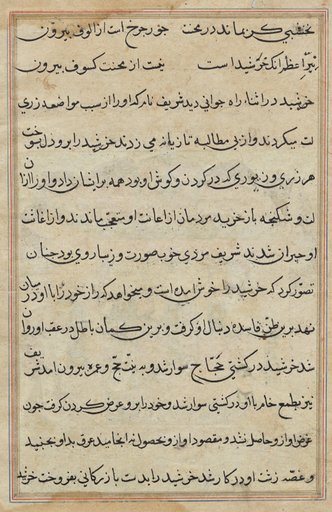 نخشبی کس نماند در محنت جور چرخ است از الوف بیرون
نیّر اعظم آنکه خرشید است نیست از محنت کسوف بیرون
خرشید در اثناء راه جوانی دید شریف نام که او را از سبب مواضعه زری
لت میکردند و از پی مطالبه تازیانه می زدند خرشید را برو دل سوخت
هر زری و زیوری که در گردن و گوش او بود همه برایشان داد و او را از آن
لت و شکنجه باز خرید مردمان از اعانت او متعجب ماندند و از اغاثت
او حیران شدند شریف مردی خوب صورت و زیبا روی بود چنان
تصوّر کرد که خرشید را خوش آمده است و میخواهد که راز خود را با او در میان
نهد برین ظن فاسد دنبال او گرفت و برین گمان باطل در عقب او روان
شد خرشید در کشتی حجاج سوار شد و به نیت حج و عمره بیرون آمد شریف
نیز بطمع خام با او در کشتی سوار شد و خود را برو عرض کردن گرفت چون
غرض او ازو حاصل نشد و مقصود او ازو بحصول نه انجامید عرق بد او بجنبید
و غصه زشت او در کار شد خرشید را بدست بازرگانی بفروخت خرشید